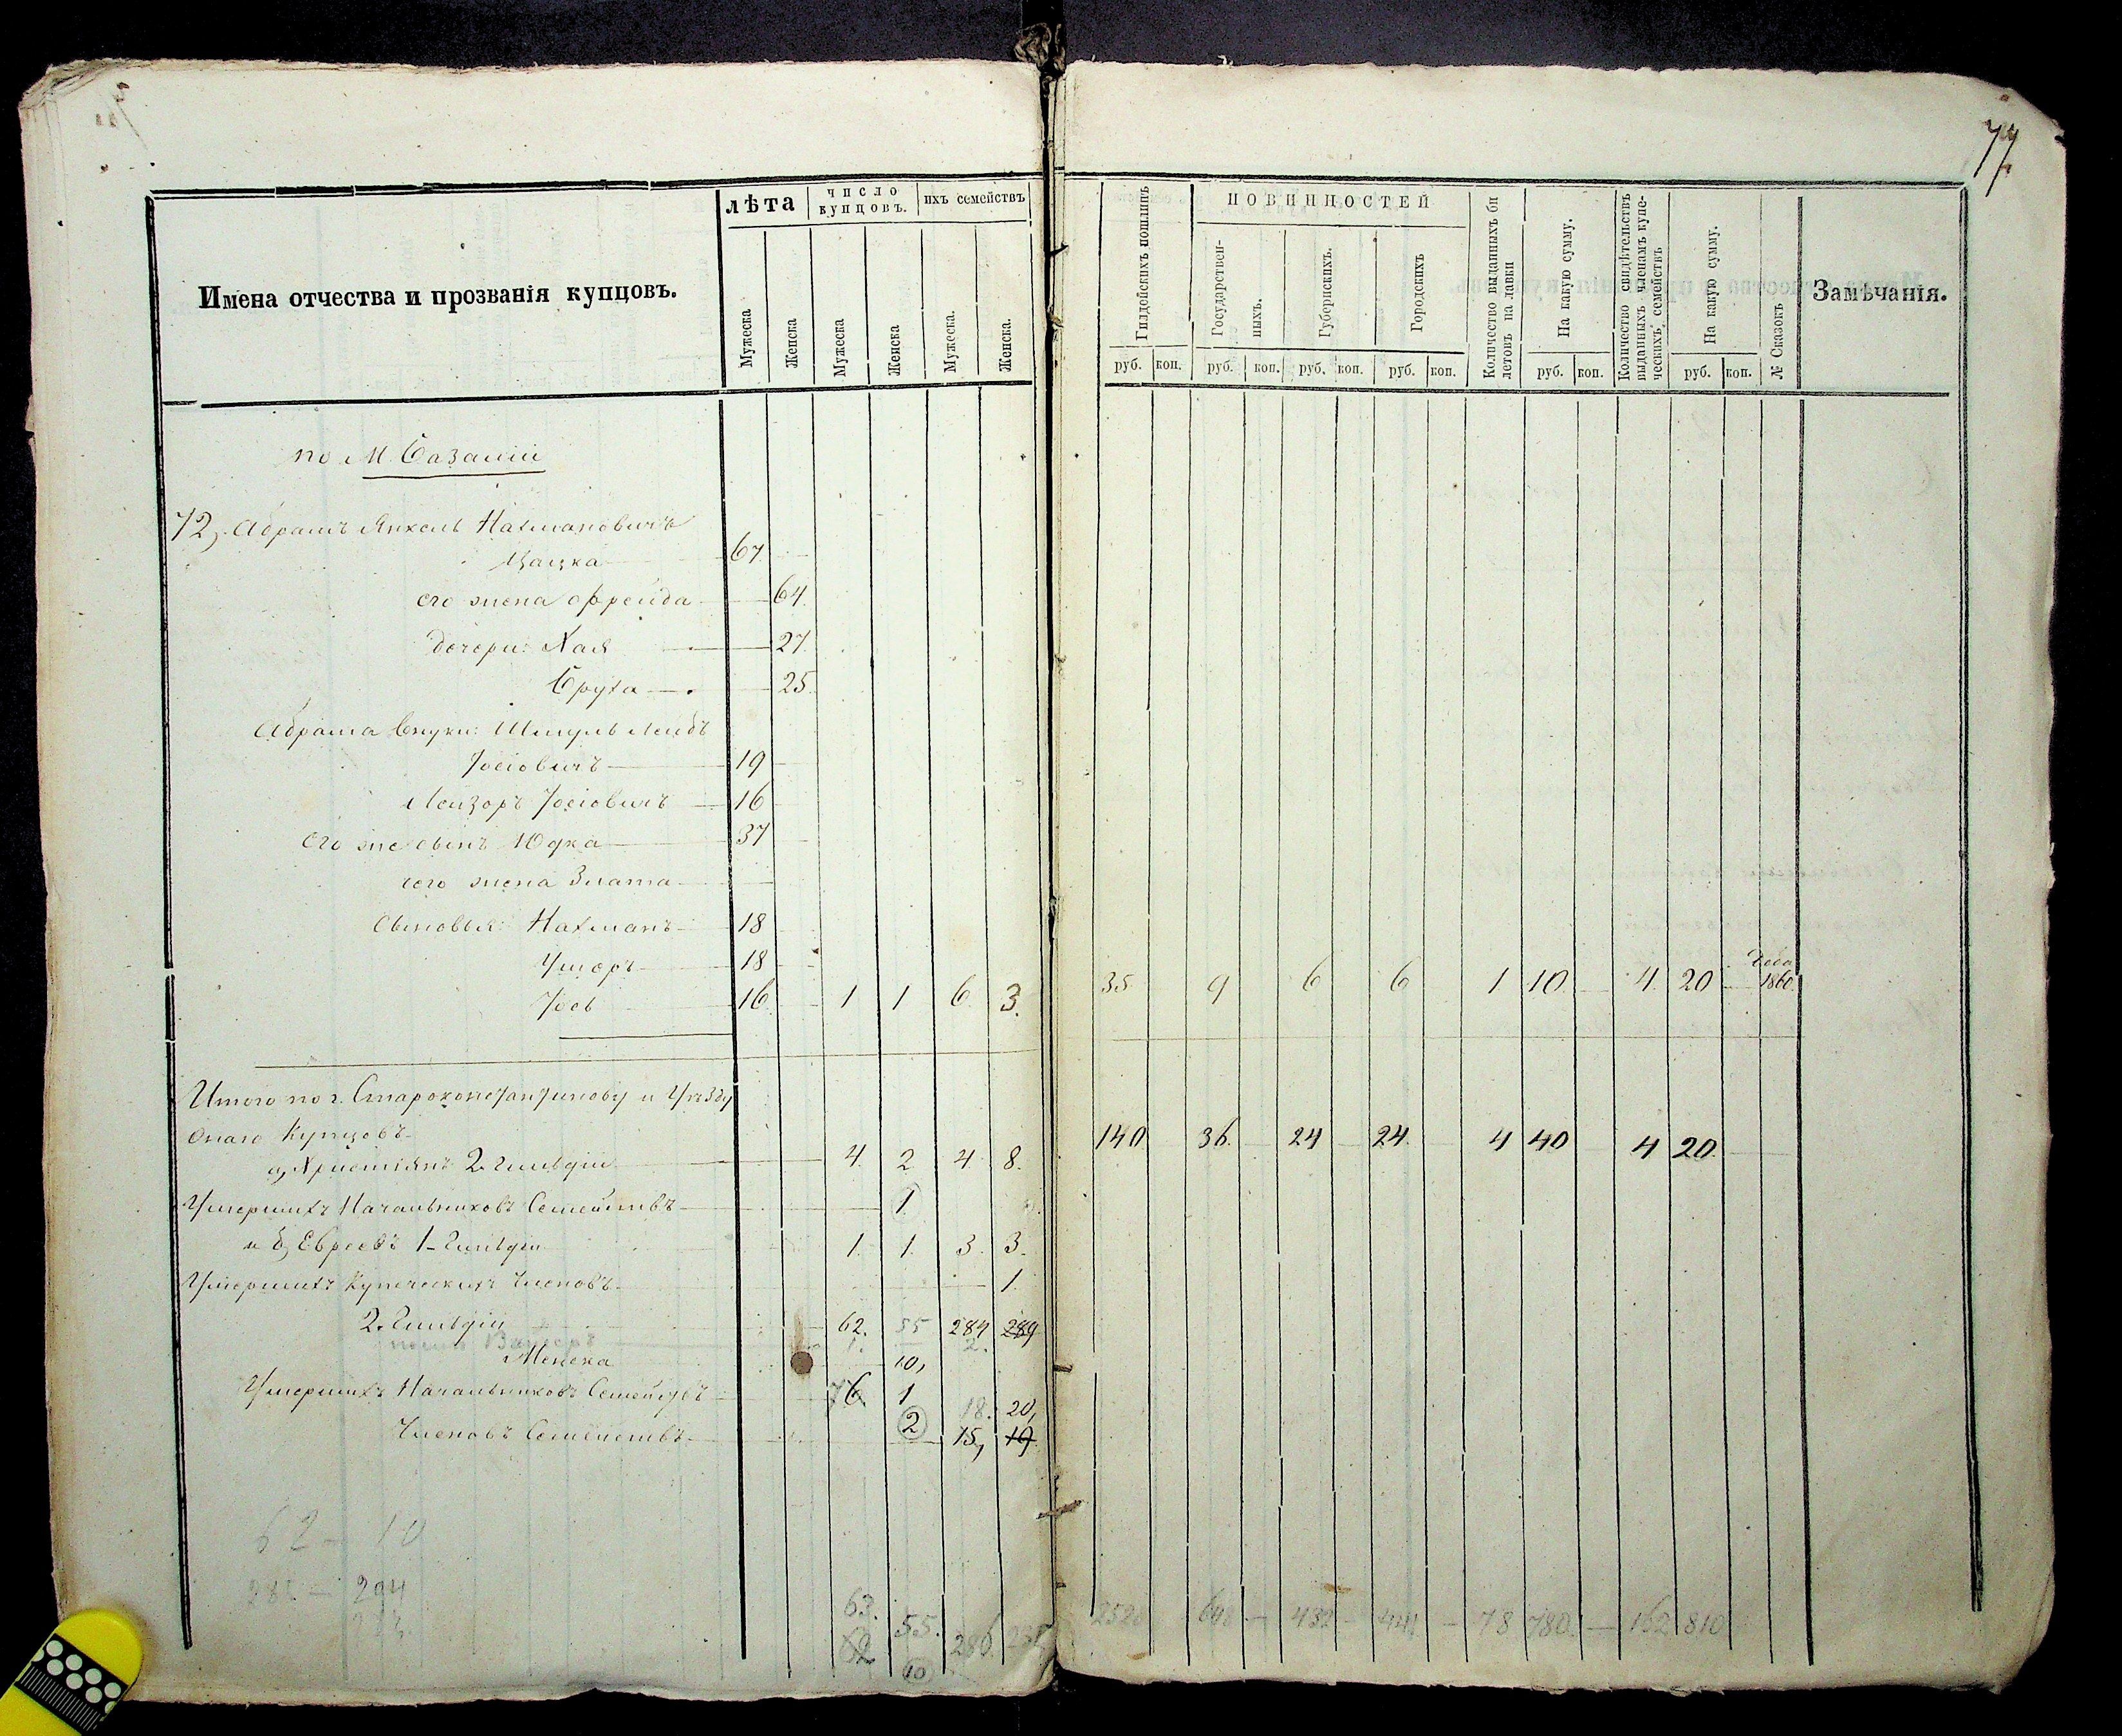 77
Имена отчества и прозванія купцовъ.
лѣта
Мужеска
Женска
число купцовъ.
Мужеска
Женска
ихъ семействъ
Мужеска.
Женска.
Гильдейскихъ пошлинъ
руб. коп.
ПОВИННОСТЕЙ
Государственныхъ.
руб. коп.
Губернскихъ.
руб. коп.
Городскихъ
руб. коп.
Количество выданныхъ би
летовъ на лавки
На какую сумму.
руб. коп.
Количество свидѣтельствъ
выданныхъ членамъ купе-
ческихъ семействъ
На какую сумму.
руб. коп.
№ Сказокъ
Замѣчанія.
по М. Базаліи
72). Абрамъ Янкель Нахмановичъ
Цацка 67.
его жена Фрейда 64.
дочери: Хая 27.
Бруха 25.
Абрама внуки: Шмуль Лейбъ
Іосіовичъ 19
Лейзоръ Іосіовичъ 16
его же сынъ Юдка 37
того жена Злата
сыновья: Нахманъ 18
Ушеръ 18
Іось 16 1 1 6 3. 35 9 6 6 1 10 4 20 1860
Итого по г. Староконстантинову и Уѣзду
онаго Купцовъ
а, Христіянъ 2. Гильдіи 4. 2 4 8. 140 36. 24 24 4 40 4 20
Умершихъ Начальниковъ Семействъ 1
и б, Евреевъ 1- Гильдіи 1. 1. 3. 3.
Умершихъ Купеческихъ Членовъ 1.
2. Гильдіи 62. 55 284 289
1. 2.
10,
Умершихъ Начальниковъ Семействъ 6 1
2 18. 20,
Членовъ Семействъ 15, 19
62 - 10
294
63. 55.
62 10 286 432 78 780 162 810